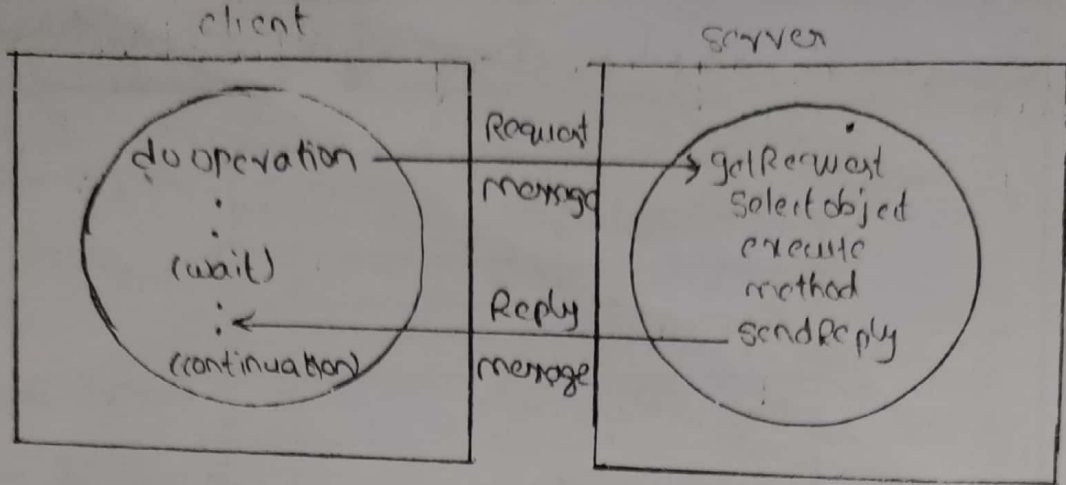 client
server
do operation
.
.
(wait)
:
(continuation)
Request
message
Reply
message
getRequest
select object
execute
method
sendReply